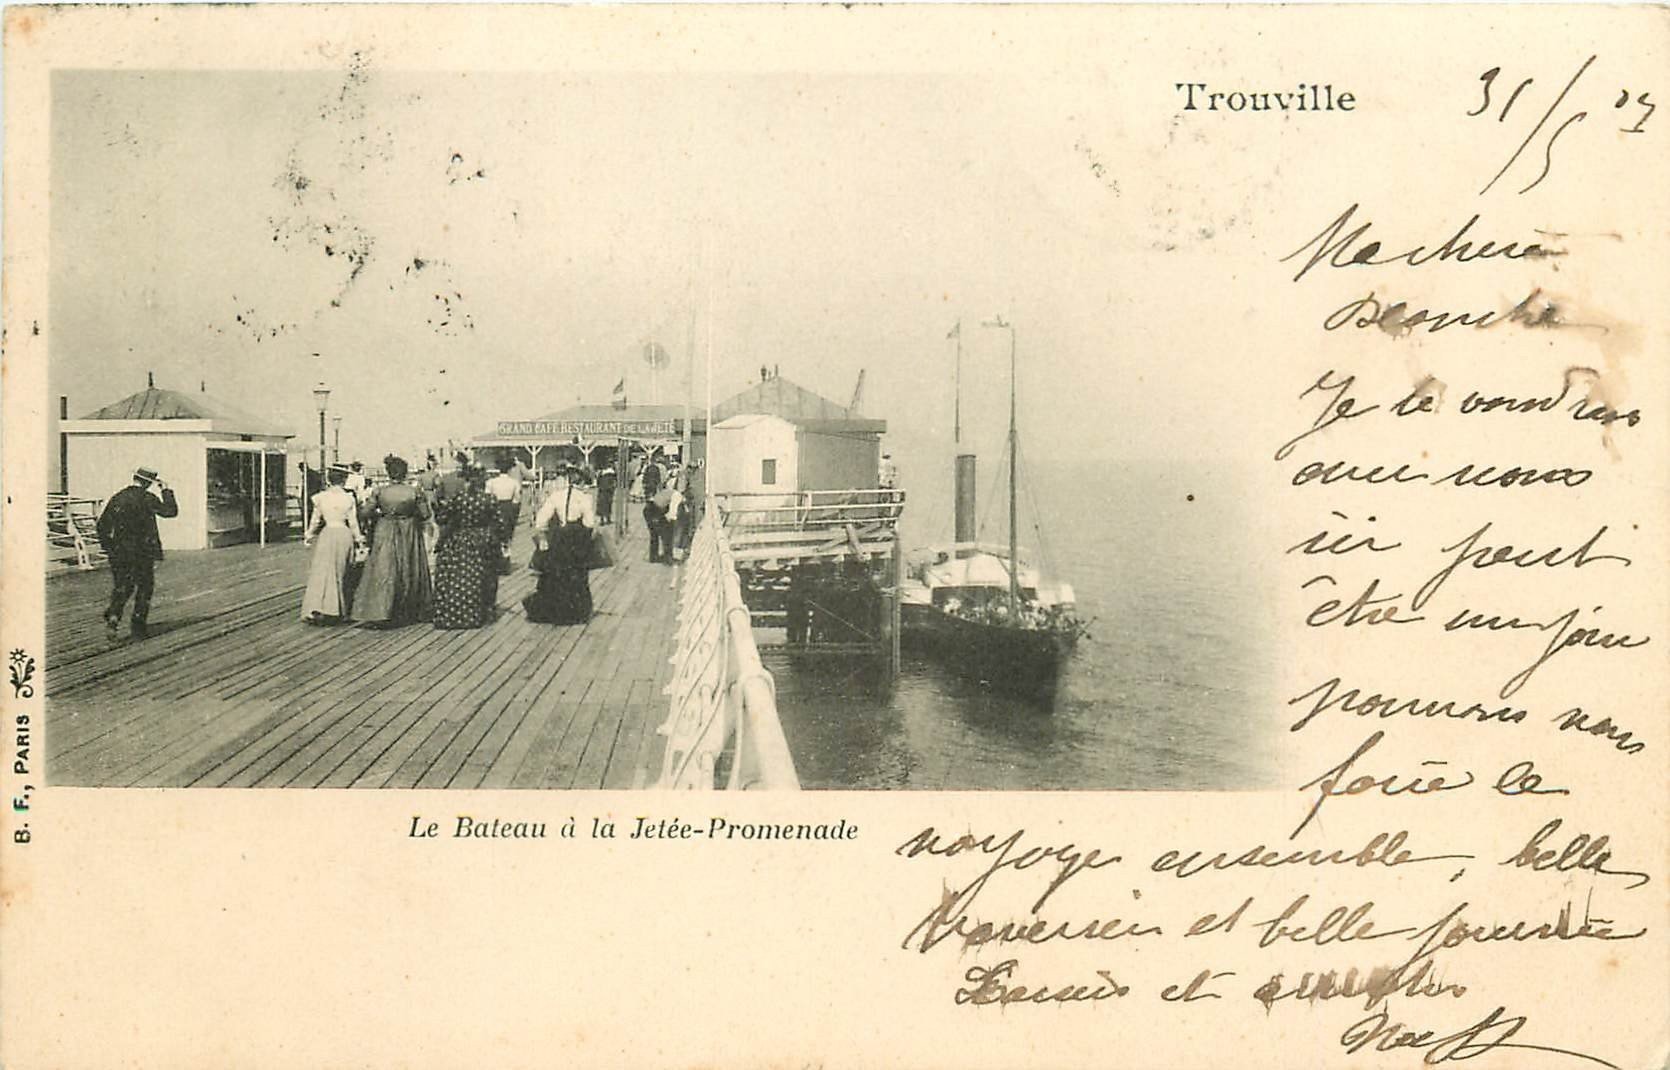 Trouville
31/5 03
Ma chère
Blanche
Je te voudrais
avec nous
ici peut
être un jour
pourrons nous
faire le
voyage ensemble, belle
traversée et belle journée
Baisers et
GRAND CAFÉ RESTAURANT DE LA JETÉE
Le Bateau à la Jetée-Promenade
B. F., PARIS